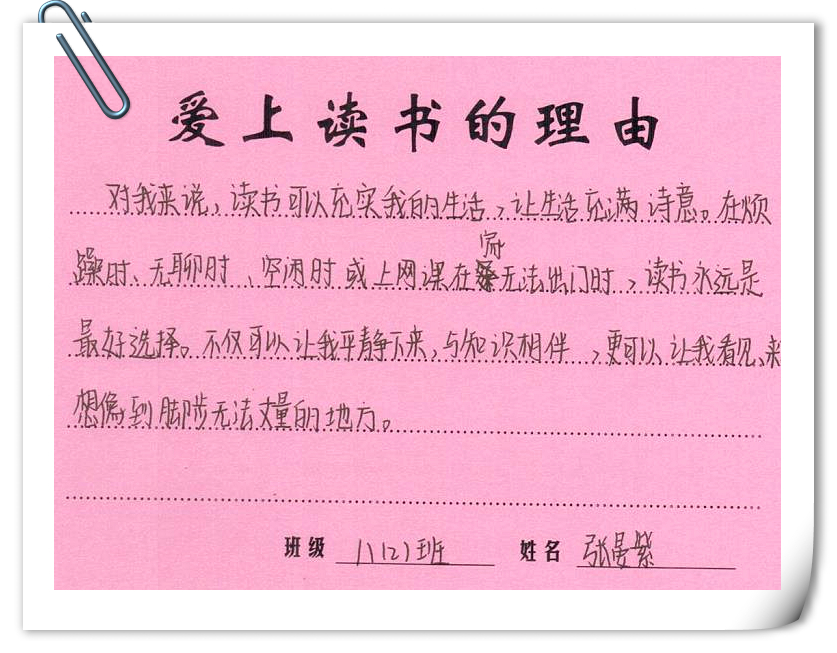 爱上读书的理由
对我来说，读书可以充实我的生活，让生活充满诗意。在烦
躁时、无聊时、空闲时或上网课在家无法出门时，读书永远是
最好选择。不仅可以让我平静下来，与知识相伴，更可以让我看见、来
想像到脚步无法丈量的地方。
班级 八(2)班 姓名 张曼紫